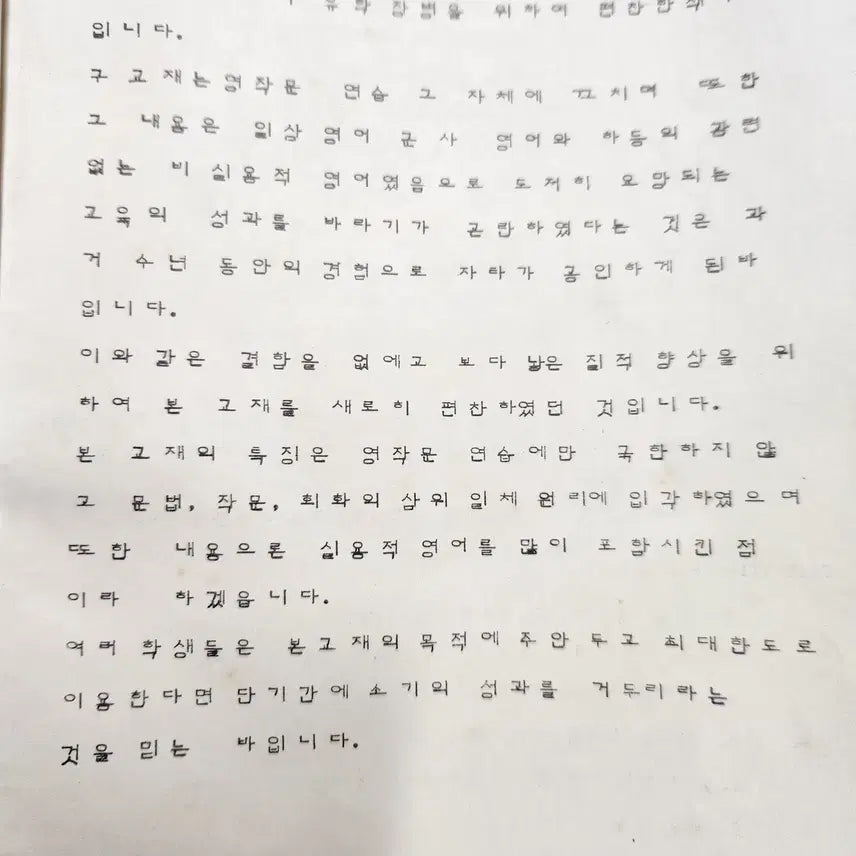 유학 장병을 위하여 편찬한
입니다.
구 교재는 영작문 연습 그 자체에 끄치며 또한
그 내용은 일상 영어 군사 영어와 하등의 관련
없는 비 실용적 영어였음으로 도저히 요망되는
교육의 성과를 바라기가 곤란하였다는 것은 과
거 수년 동안의 경험으로 자타가 공인하게 된바
입니다.
이와 같은 결함을 없에고 보다 낳은 질적 향상을 위
하여 본 교재를 새로히 편찬하였던 것입니다.
본 교재의 특징은 영작문 연습에만 국한하지 않
고 문법, 작문, 회화의 삼위 일체 원리에 입각하였으며
또한 내용으론 실용적 영어를 많이 포함시킨 점
이라 하겠읍니다.
여러 학생들은 본교재의 목적에 주안 두고 최대한도로
이용한다면 단기간에 소기의 성과를 거두리라는
것을 믿는 바입니다.